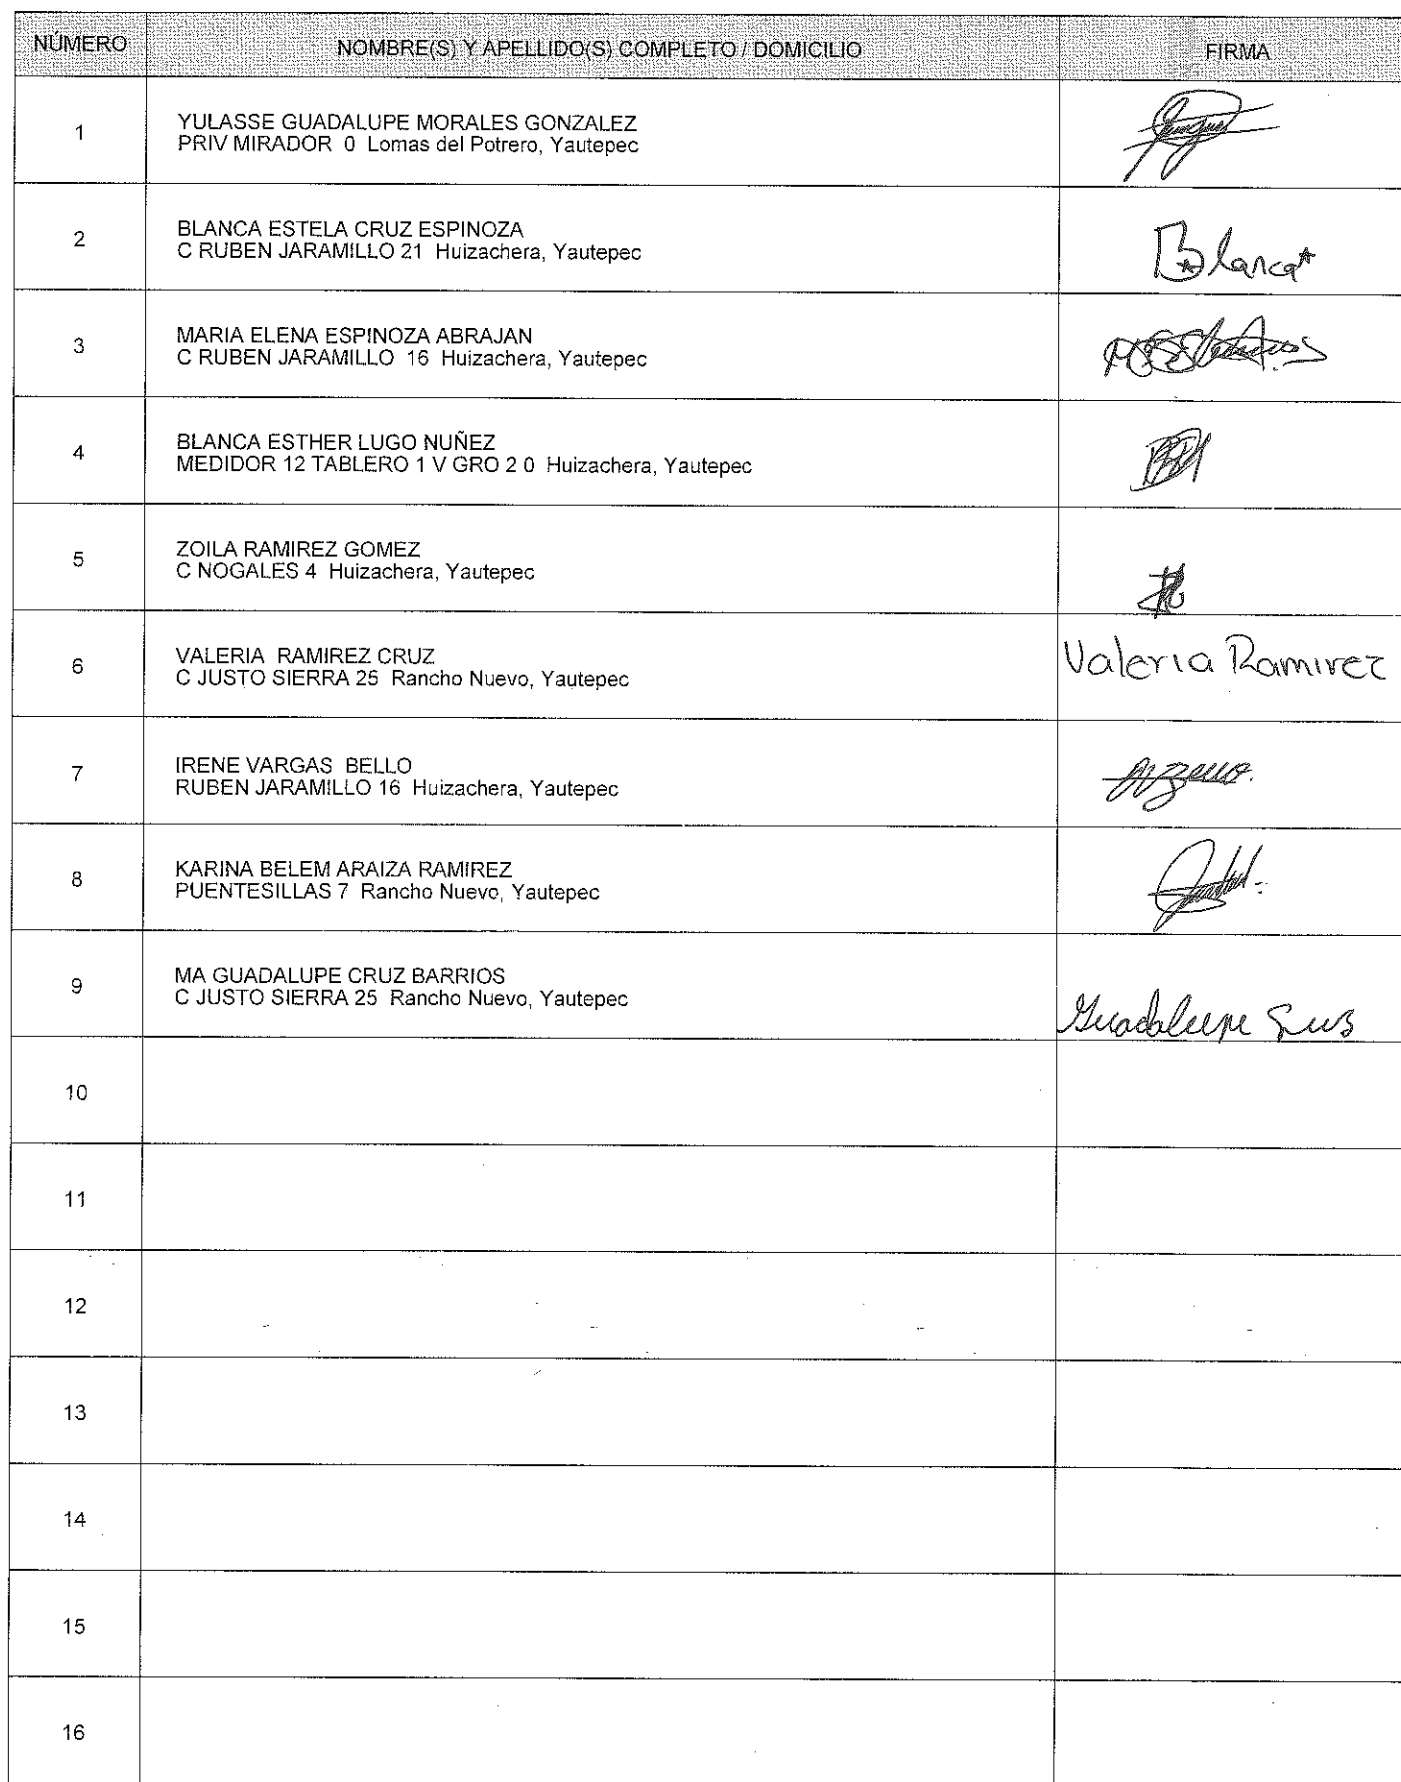 NÚMERO NOMBRE(S) Y APELLIDO(S) COMPLETO / DOMICILIO FIRMA
1 YULASSE GUADALUPE MORALES GONZALEZ
PRIV MIRADOR 0 Lomas del Potrero, Yautepec
2 BLANCA ESTELA CRUZ ESPINOZA
C RUBEN JARAMILLO 21 Huizachera, Yautepec
Blanca
3 MARIA ELENA ESPINOZA ABRAJAN
C RUBEN JARAMILLO 16 Huizachera, Yautepec
4 BLANCA ESTHER LUGO NUÑEZ
MEDIDOR 12 TABLERO 1 V GRO 2 0 Huizachera, Yautepec
5 ZOILA RAMIREZ GOMEZ
C NOGALES 4 Huizachera, Yautepec
6 VALERIA RAMIREZ CRUZ
C JUSTO SIERRA 25 Rancho Nuevo, Yautepec
Valeria Ramirez
7 IRENE VARGAS BELLO
RUBEN JARAMILLO 16 Huizachera, Yautepec
8 KARINA BELEM ARAIZA RAMIREZ
PUENTESILLAS 7 Rancho Nuevo, Yautepec
9 MA GUADALUPE CRUZ BARRIOS
C JUSTO SIERRA 25 Rancho Nuevo, Yautepec
Guadalupe Cruz
10
11
12
13
14
15
16